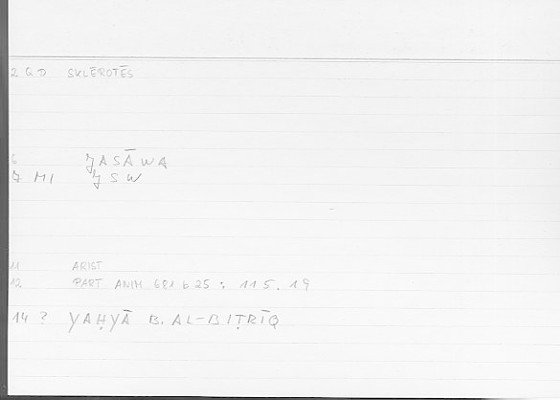 2 QD SKLĒROTĒS
6 JASĀWA
7 MI JSW
11 ARIST
12 PART ANIM 681 b 25 : 115.19
14 ? YAḤYĀ B. AL-BIṬRĪQ